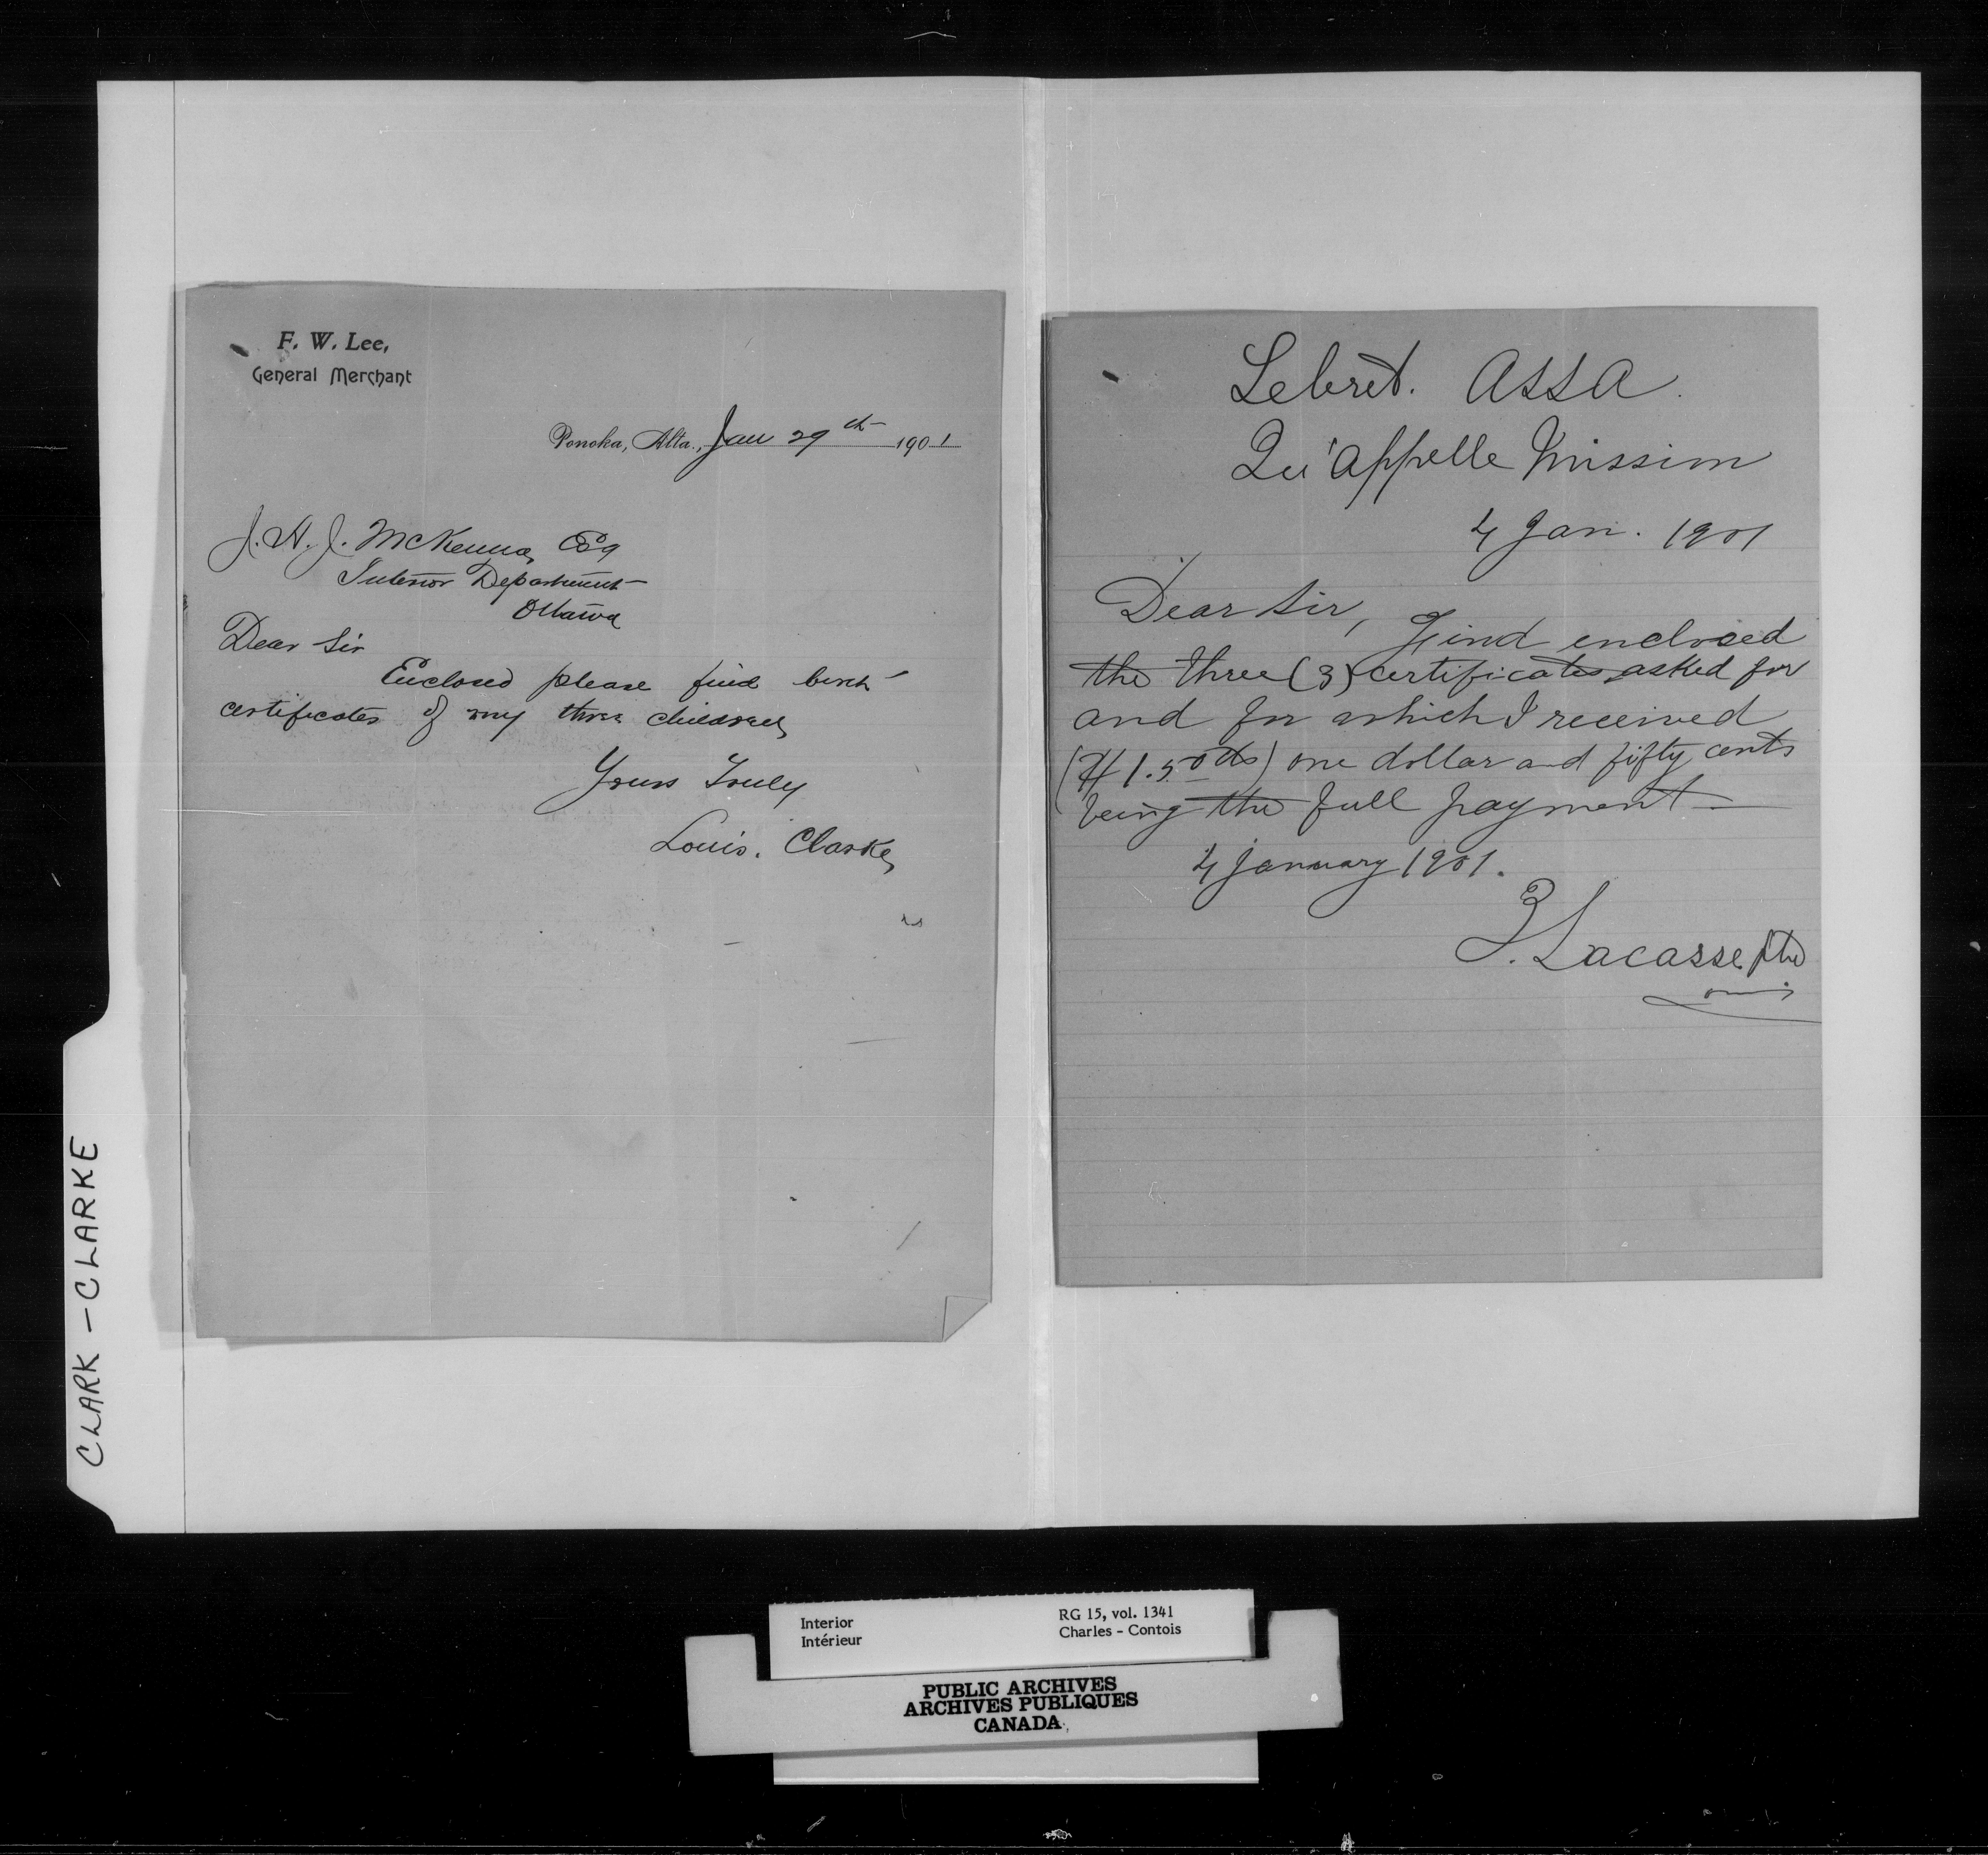 F. W. Lee,
General Merchant
Ponoka, Alta., Jan 29th 1901
J. A. J. McKenna, Esq
Interior Department
Ottawa
Dear Sir
Enclosed please find birth
certificates of my three children
Yours Truly
Louis. Clarke
Lebret. Assa.
Qu'Appelle Mission
4 Jan. 1901
Dear Sir,
Find enclosed
the three (3) certificates asked for
and for which I received
($1.50 cts) one dollar and fifty cents
being the full payment
4 January 1901.
Z. Lacasse ptre
omi
CLARK - CLARKE
Interior
Intérieur
RG 15, vol. 1341
Charles - Contois
PUBLIC ARCHIVES
ARCHIVES PUBLIQUES
CANADA